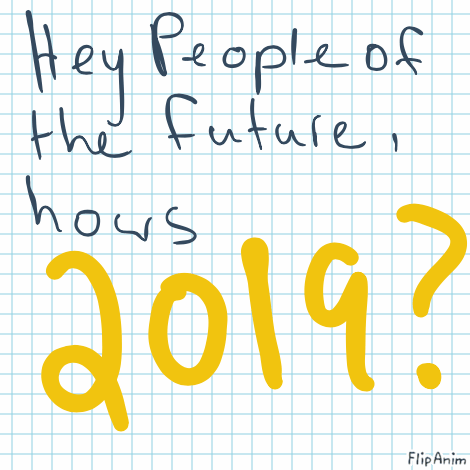 Hey People of
the future,
hows
2019?
FlipAnim